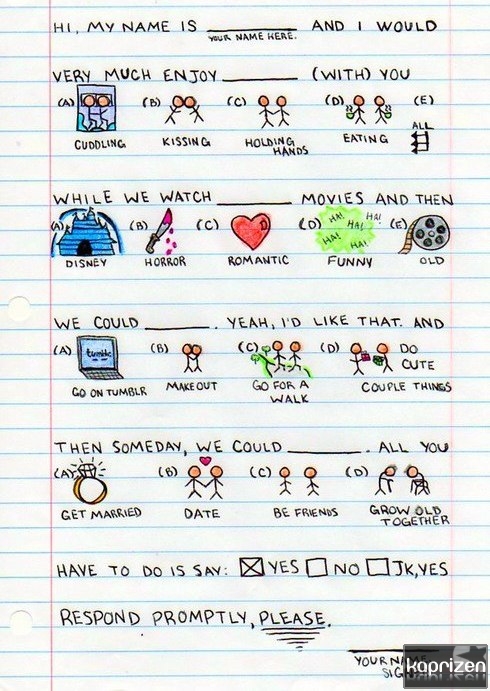 HI, MY NAME IS ________ AND I WOULD
YOUR NAME HERE.
VERY MUCH ENJOY ________ (WITH) YOU
(A) (B) (C) (D) (E)
ALL
CUDDLING KISSING HOLDING HANDS EATING
WHILE WE WATCH ________ MOVIES AND THEN
(A) (B) (C) (D) HA! HA! HA! HA! HA! (E)
DISNEY HORROR ROMANTIC FUNNY OLD
WE COULD ________. YEAH, I'D LIKE THAT. AND
(A) tumblr (B) (C) (D) DO CUTE
GO ON TUMBLR MAKEOUT GO FOR A WALK COUPLE THINGS
THEN SOMEDAY, WE COULD ________. ALL YOU
(A) (B) (C) (D)
GET MARRIED DATE BE FRIENDS GROW OLD TOGETHER
HAVE TO DO IS SAY: ☒ YES ☐ NO ☐ JK, YES
RESPOND PROMPTLY, PLEASE.
YOUR
kaprizen